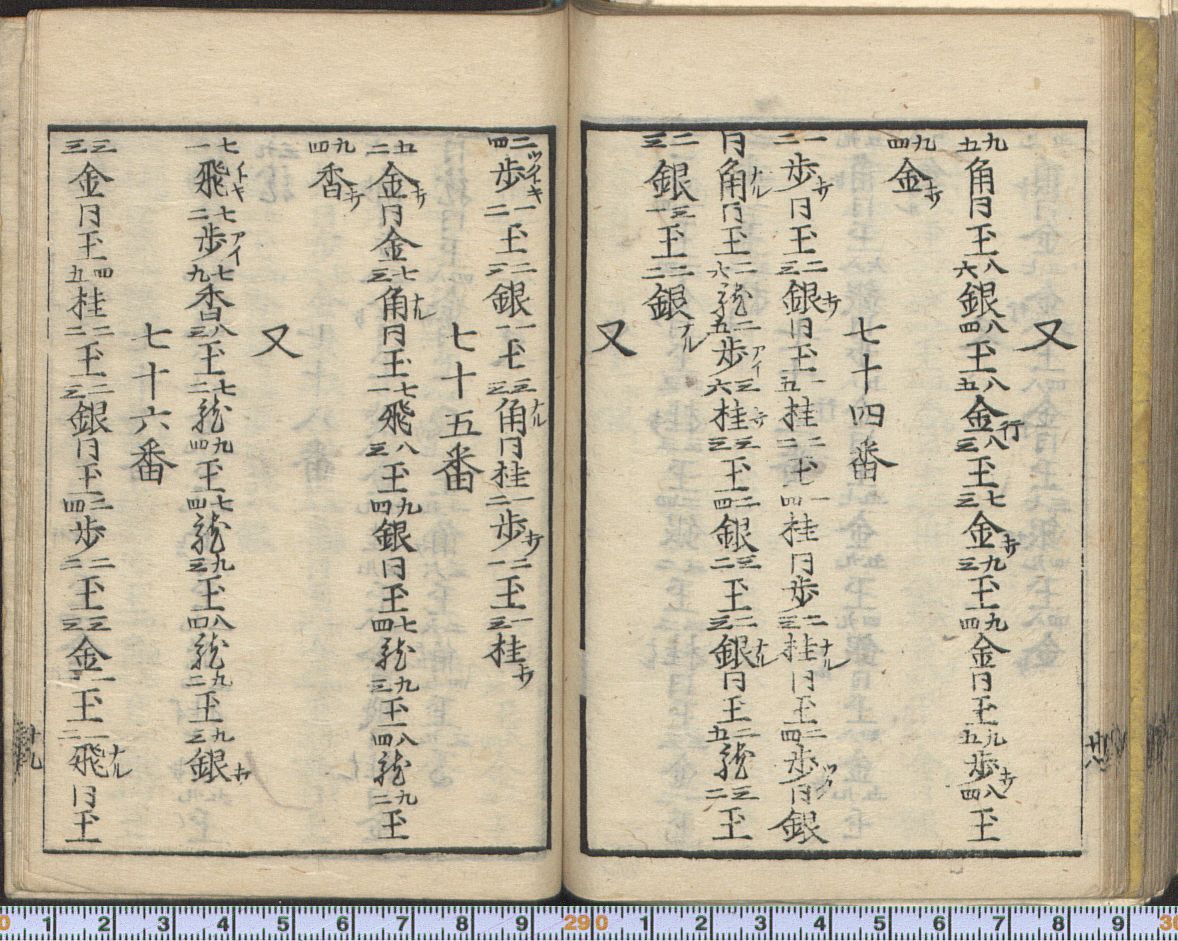 又
九五角同王八六銀八四王八五金行八三王七三金打九三王九四金同王九五歩打八四王
九四金打
七十四番
一二歩打同王二三銀打同王一五桂二二王一四桂同歩二三桂ナル同王二四歩ツク同銀
同角ナル同王二六龍二五歩アイ三六桂打三三王二四銀三二王二三銀ナル同王二五龍三二王
二三銀三一王二二銀ナル
又
二四歩ツイキ一二王二三銀一一王三三角ナル同桂一二歩打二一王一三桂打
七十五番
五二金打同金七三角ナル同王七一飛八三王九四銀同王七四龍九三王八四龍九二王
九四香打
又
七一飛イキ七二歩アイ七九香八三王七二龍九四王七四龍九三王八四龍九二王九三銀打
七十六番
三三金同王四五桂二二王二三銀同王二四歩二二王三三金一一王一二飛ナル同王